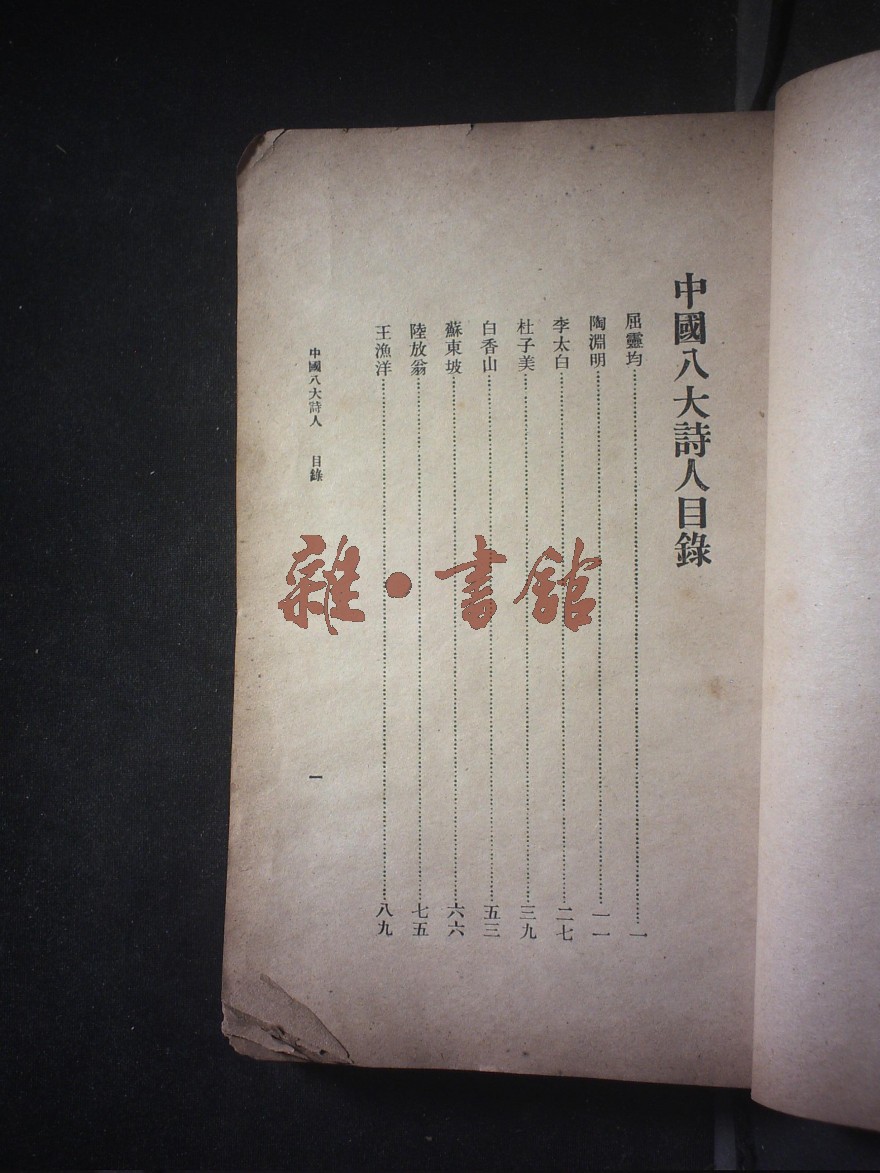 中國八大詩人目錄
屈靈均……一
陶淵明……一一
李太白……二七
杜子美……三九
白香山……五三
蘇東坡……六六
陸放翁……七五
王漁洋……八九
中國八大詩人 目錄 一
雜·書館